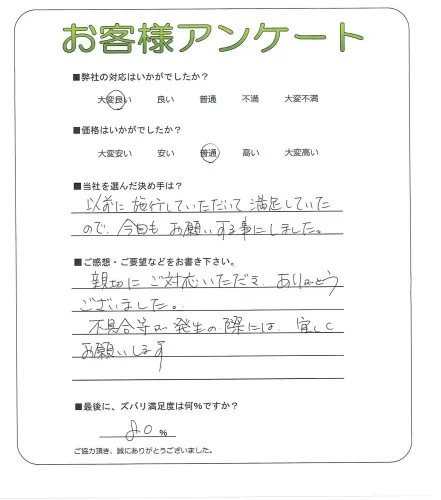 お客様アンケート
■弊社の対応はいかがでしたか?
大変良い 良い 普通 不満 大変不満
■価格はいかがでしたか?
大変安い 安い 普通 高い 大変高い
■当社を選んだ決め手は?
以前に施行していただいて満足していた
ので、今回もお願いする事にしました。
■ご感想・ご要望などをお書き下さい。
親切にご対応いただき、ありがとう
ございました。
不具合等が発生の際には、宜しく
お願いします
■最後に、ズバリ満足度は何%ですか?
80 %
ご協力頂き、誠にありがとうございました。